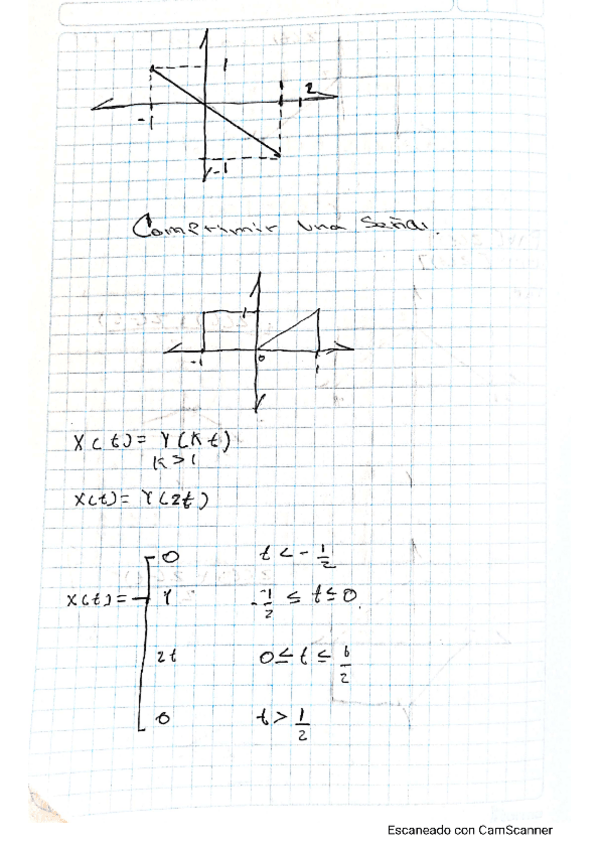 1
2
-1
-1
Comprimir una Señal.
1
-1 0 1
X(t) = Y(Kt)
K>1
X(t) = Y(2t)
0 t < - 1/2
X(t) = 1 -1/2 ≤ t ≤ 0
2t 0 ≤ t ≤ 1/2
0 t > 1/2
Escaneado con CamScanner